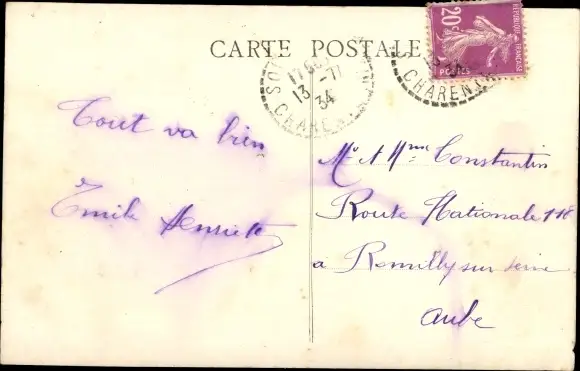 CARTE POSTALE
20c
RÉPUBLIQUE FRANÇAISE
POSTES
17
13 -11
34
CHAREN
CHARENTE
Tout va bien
Emile Henriette
Mr et Mme Constantin
Route Nationale 118
à Romilly sur Seine
Aube